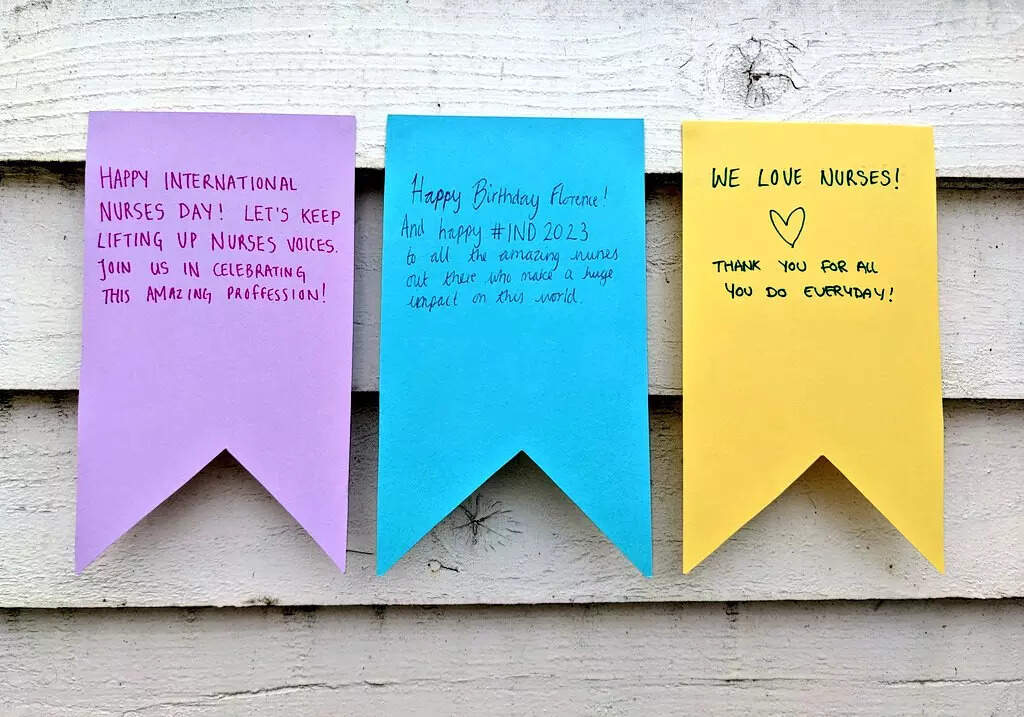 HAPPY INTERNATIONAL
NURSES DAY! LET'S KEEP
LIFTING UP NURSES VOICES.
JOIN US IN CELEBRATING
THIS AMAZING PROFFESSION!
Happy Birthday Florence!
And happy #IND 2023
to all the amazing nurses
out there who make a huge
impact on this world.
WE LOVE NURSES!
THANK YOU FOR ALL
YOU DO EVERYDAY!